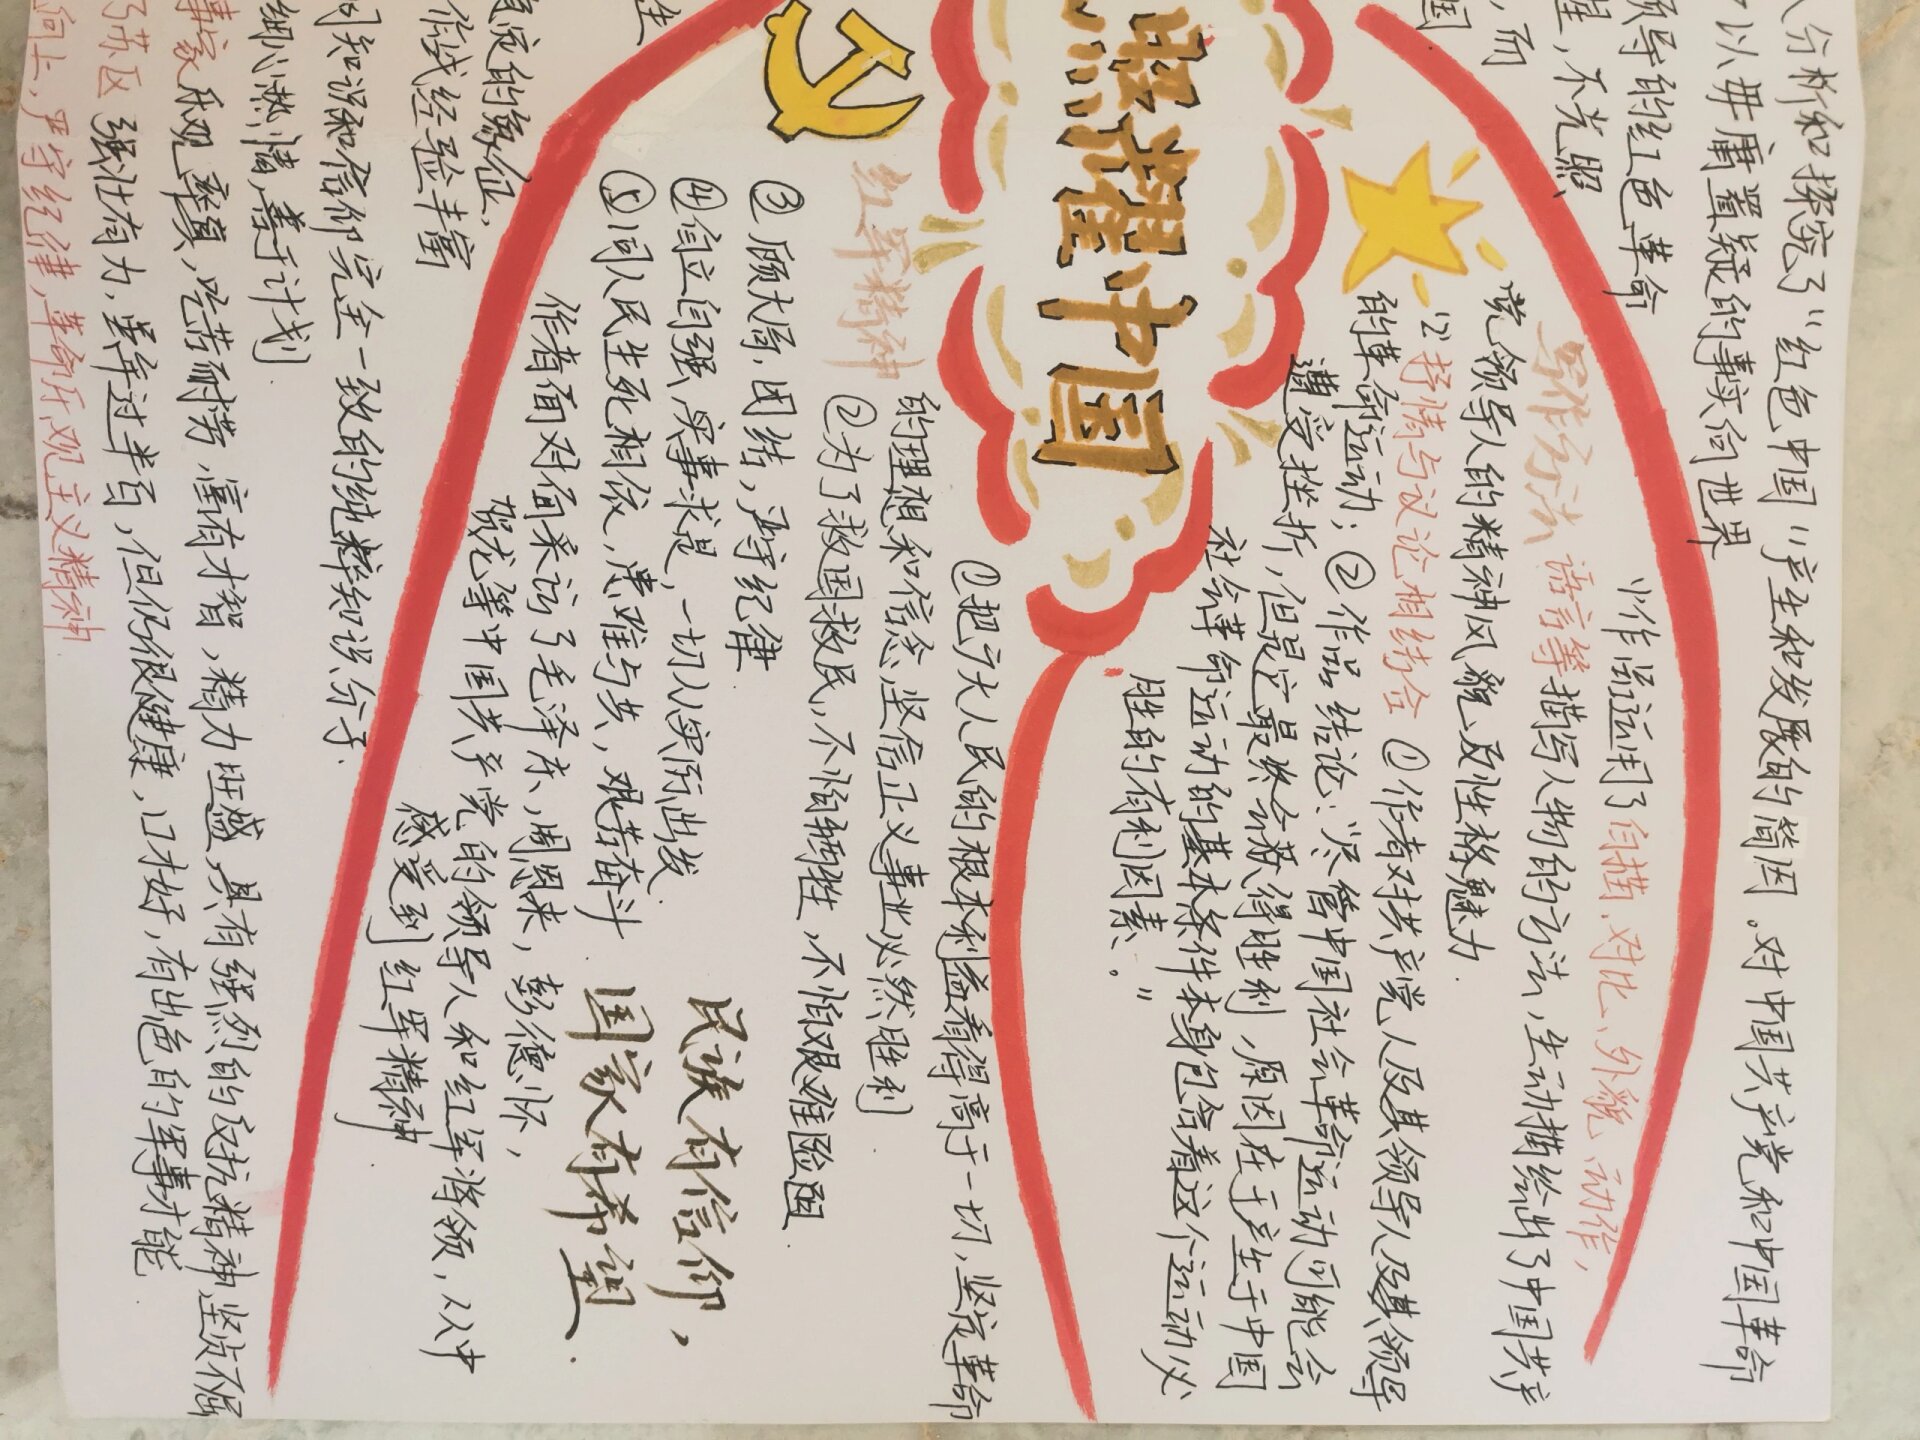 分析和探究了“红色中国”产生和发展的简因。对中国共产党和中国革命
以毋庸置疑的事实向世界
领导的红色革命
,不光照
,而
国
写作方法
(1)作品运用了白描、对比、外貌、动作,
语言等描写人物的方法,生动描绘出了中国共产
党领导人的精神风貌、及性格魅力.
(2)抒情与议论相结合 ①作者对共产党人及其领导人及其领导
的革命运动;②作品结论:“尽管中国社会革命运动可能会
遭受挫折,但是它最终会获得胜利,原因在于产生于中国
社会革命运动的基本条件本身包含着这个运动必
胜的有利因素。”
照耀中国
红军精神
①把广大人民的根本利益看得高于一切,坚定革命
的理想和信念,坚信正义事业必然胜利
②为了救国救民,不怕牺牲,不怕艰难险阻
③顾大局,团结,严守纪律
④自立自强,实事求是,一切从实际出发
⑤同人民生死相依,患难与共,艰苦奋斗
民族有信仰,
国家有希望.
作者面对面采访了毛泽东、周恩来,彭德怀,
贺龙等中国共产党的领导人和红军将领,从中
感受到 红军精神
生
定的象征.
作战经验丰富
同知识和信仰完全一致的纯粹知识分子.
细心热情,善于计划
家 乐观 率真,吃苦耐劳,富有才智,精力旺盛 具有强烈的反抗精神 坚贞不屈
了苏区 强壮有力,已年过半百,但仍很健康,口才好,有出色的军事才能
向上,严守纪律,革命乐观主义精神